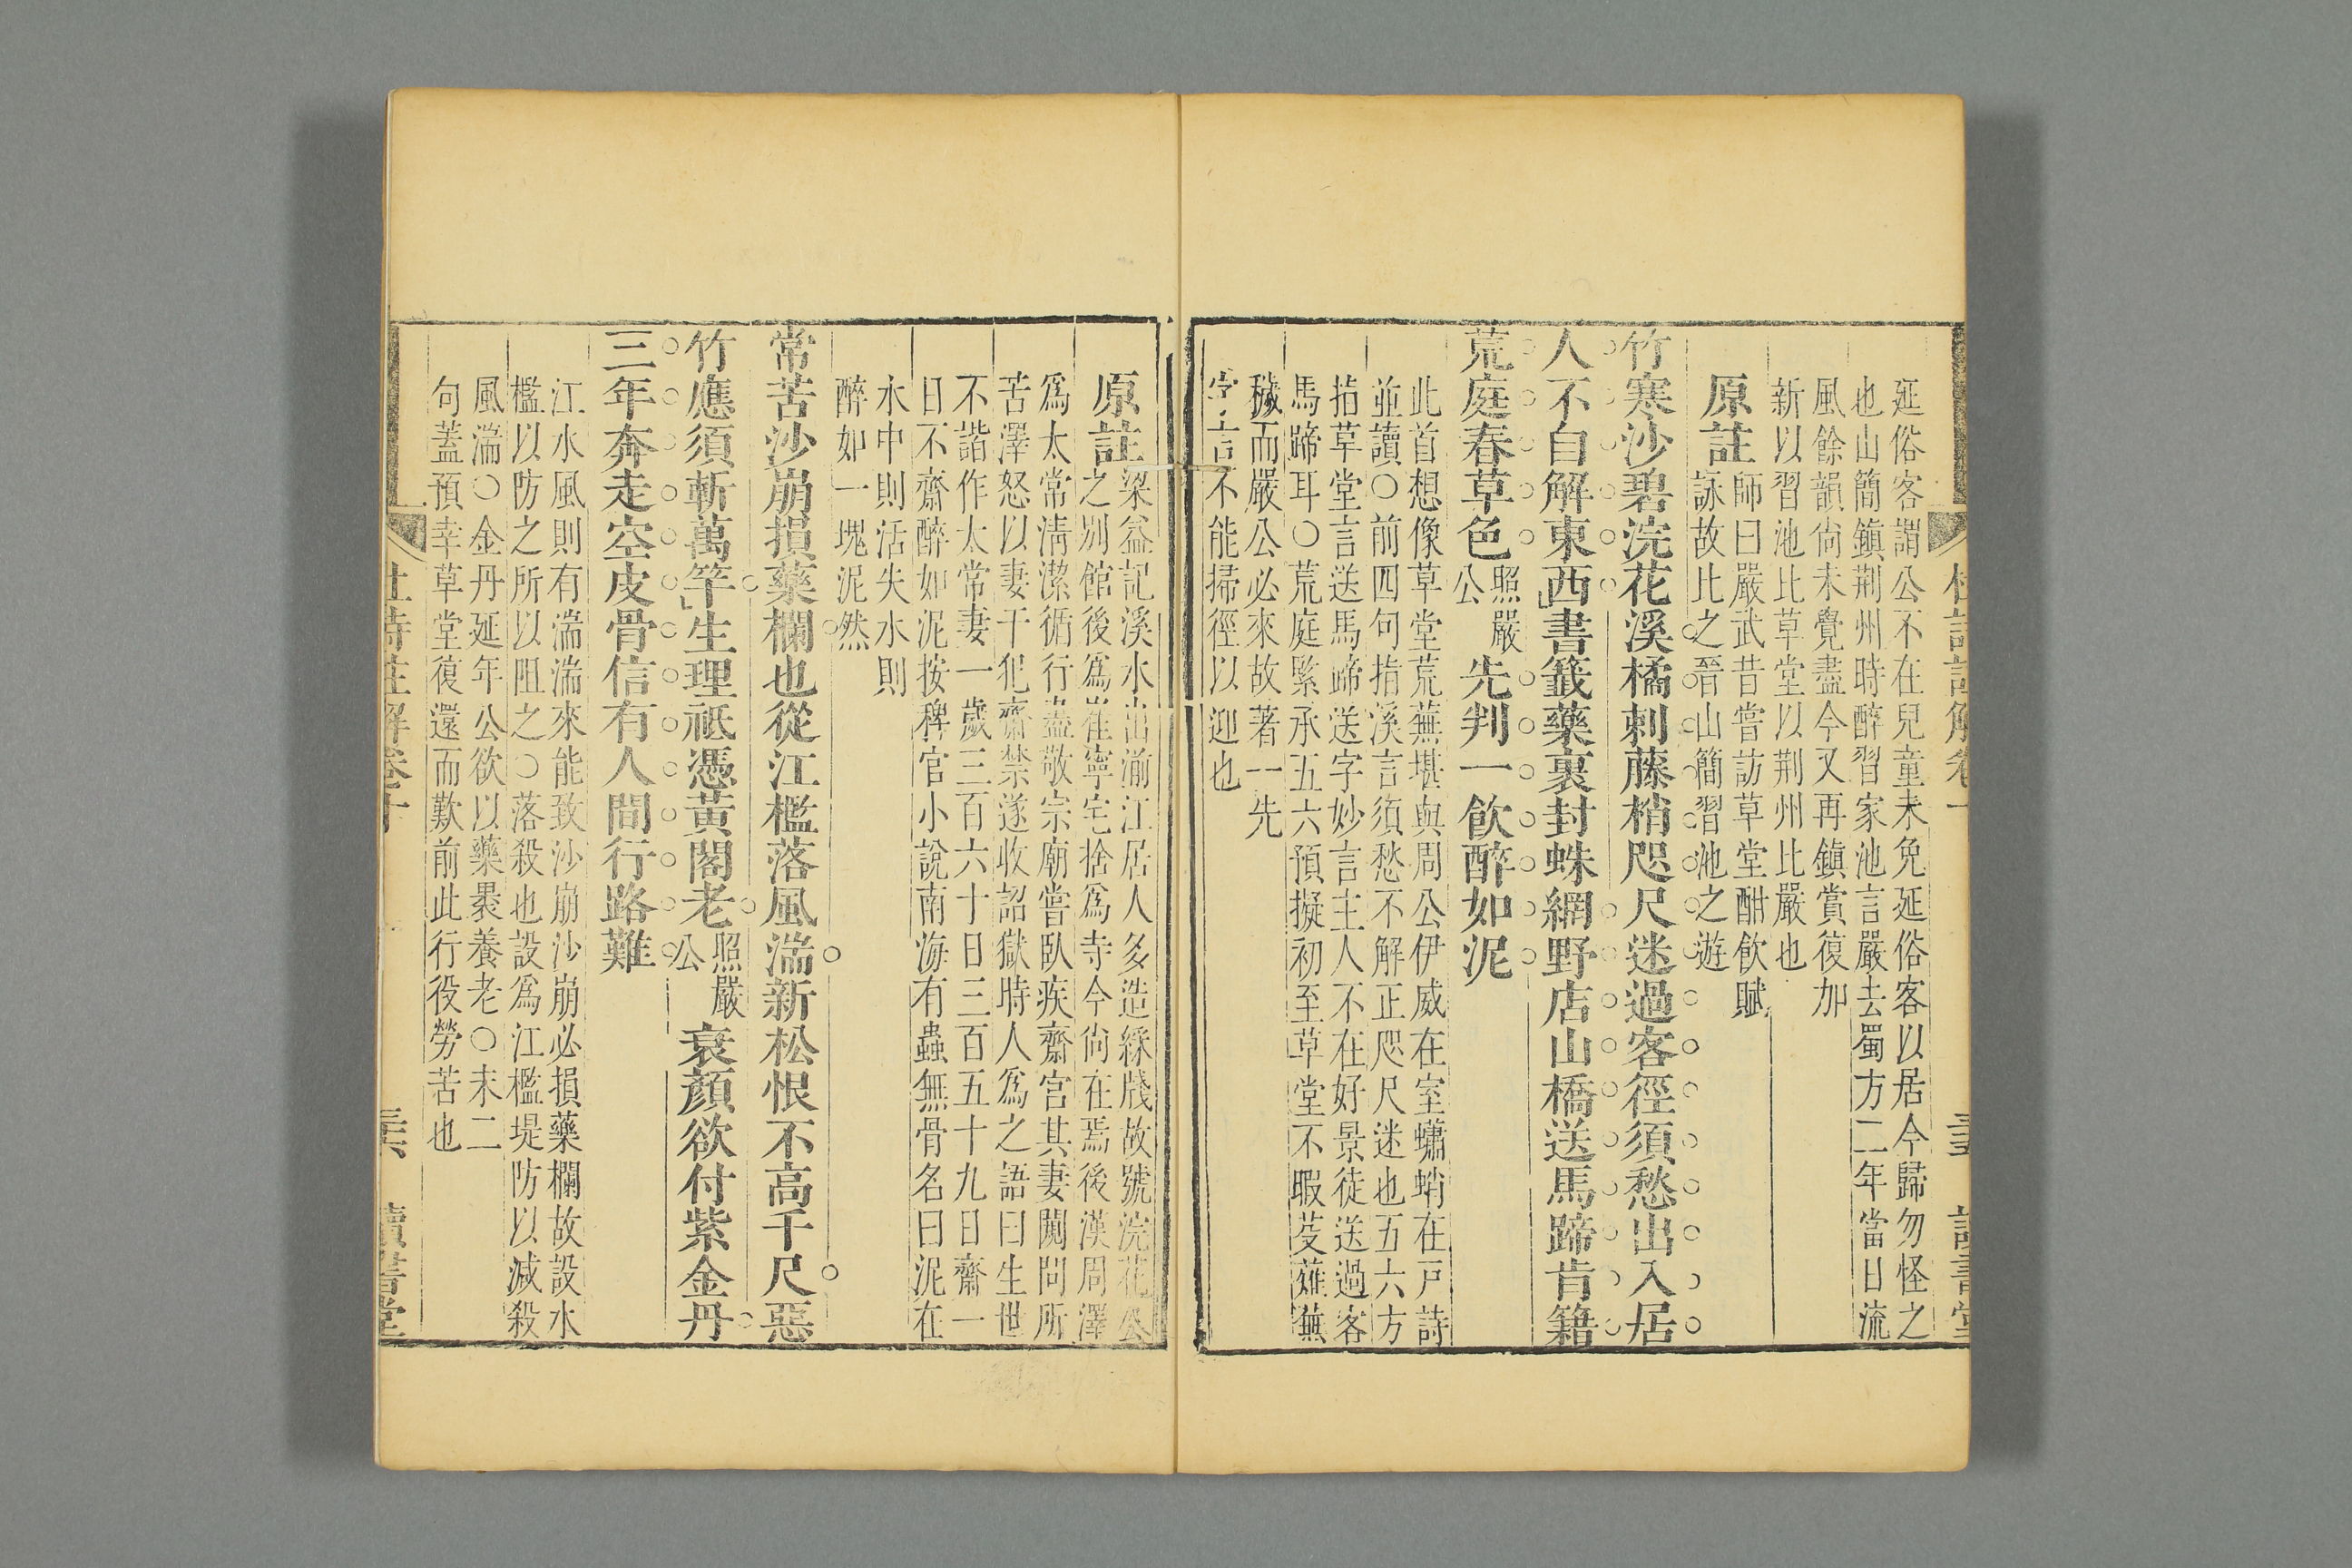 延俗客謂公不在兒童未免延俗客以居今歸勿怪之
也山簡鎮荆州時醉習家池言嚴去蜀方二年當日流
風餘韻尙未覺盡今又再鎮賞復加
新以習池比草堂以荆州比嚴也
原註師曰嚴武昔嘗訪草堂酣飲賦
詠故比之晉山簡習池之遊
竹寒沙碧浣花溪橘刺藤梢咫尺迷過客徑須愁出入居
人不自解東西書籤藥裹封蛛網野店山橋送馬蹄肯籍
荒庭春草色照嚴公先判一飲醉如泥
此首想像草堂荒蕪堪與周公伊威在室蠨蛸在戸詩
並讀○前四句指溪言須愁不解正咫尺迷也五六方
指草堂言送馬蹄送字妙言主人不在好景徒送過客
馬蹄耳○荒庭緊承五六預擬初至草堂不暇芟薙蕪
穢而嚴公必來故著一先
字言不能掃徑以迎也
杜詩註解卷十
讀書堂
原註梁益記溪水出湔江居人多造綵牋故號浣花公
之别館後爲崔寧宅捨爲寺今尙在焉後漢周澤
爲太常淸潔循行盡敬宗廟嘗臥疾齋宮其妻闚問所
苦澤怒以妻干犯齋禁遂收詔獄時人爲之語曰生世
不諧作太常妻一歲三百六十日三百五十九日齋一
日不齋醉如泥按稗官小說南海有蟲無骨名曰泥在
水中則活失水則
醉如一塊泥然
常苦沙崩損藥欄也從江檻落風湍新松恨不高千尺惡
竹應須斬萬竿生理祗憑黃閣老照嚴公衰顏欲付紫金丹
三年奔走空皮骨信有人間行路難
江水風則有湍湍來能致沙崩沙崩必損藥欄故設水
檻以防之所以阻之○落殺也設爲江檻堤防以減殺
風湍○金丹延年公欲以藥褁養老○末二
句蓋預幸草堂復還而歎前此行役勞苦也
杜詩註解卷十
讀書堂